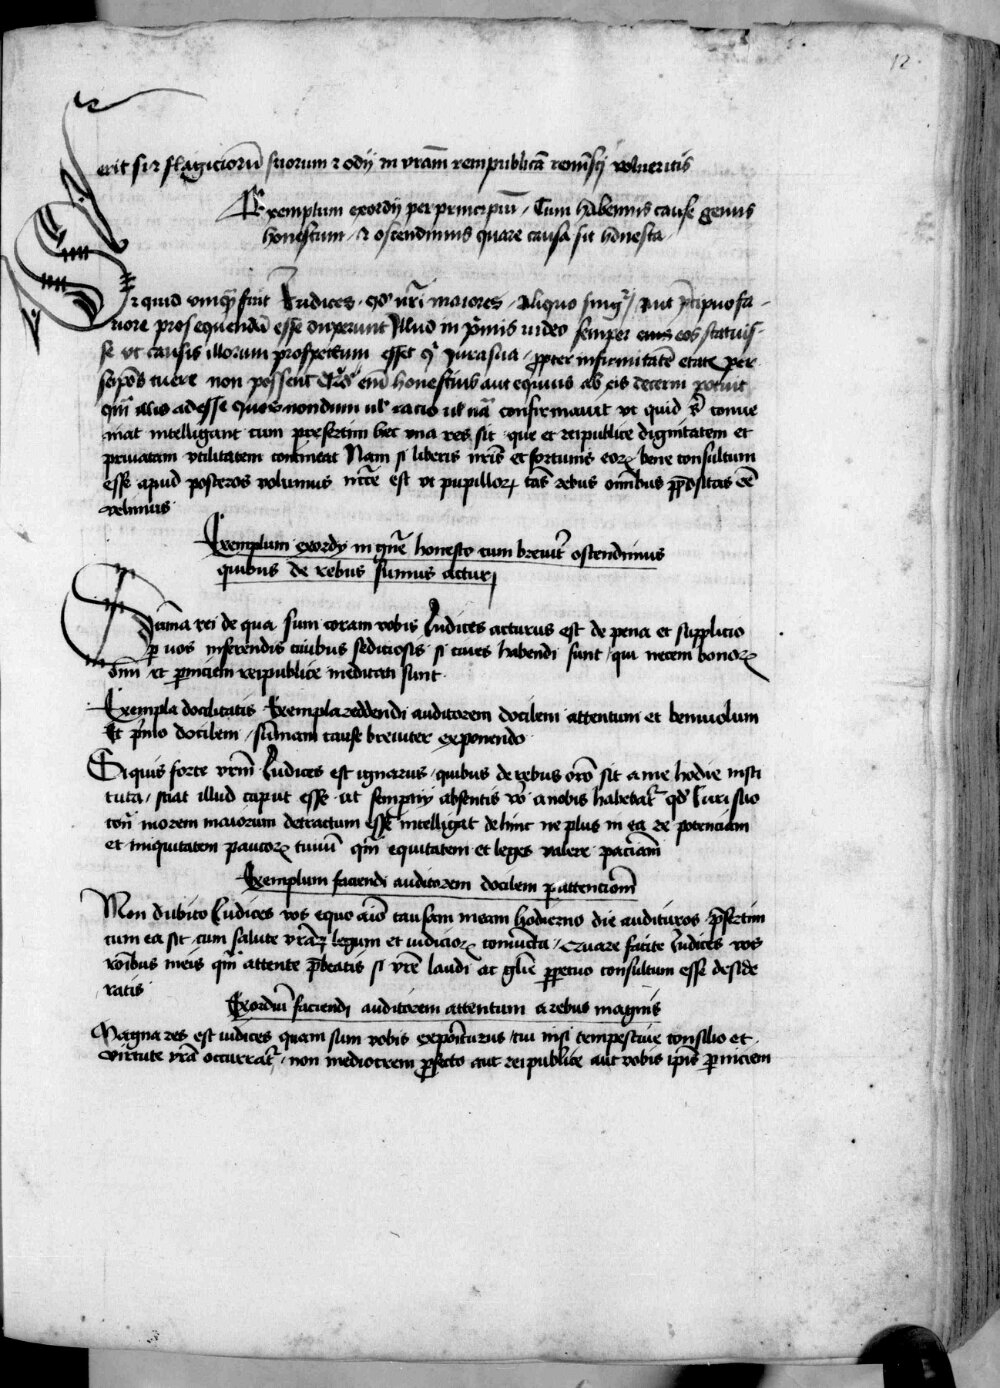 12
erit si & flagiciorū suorum & odij in vr̄am rempublicā reminisci volueritis
Exemplum exordij per principiū / Cum habemus cause genus
honestum / & ostendimus quare causa sit honesta
Et quid umq̄ fuit Iudices qd' nr̄i maiores / aliquo / aut p̄cipuo fa-
uore prosequendū esse duxerunt Illud in p̄mis video semper eos statuis-
se vt causis illorum prospectum esset q̄ Iura sua / propter infirmitatē etatis per
se tuere non possent enī honestius aut equius ab eis decerni potuit
qm̄ aliis adesse quos nondum ul' racio ul' nā confirmauit vt quid conue
niat intelligant cum presertim hec vna res sit que et reipublice dignitatem et
priuatam vtilitatem contineat Nam si liberis nr̄is et fortunis eorꝝ bene consultum
esse apud posteros volumus nc̄ce est vt pupillorꝝ rebus omībus p̄positas eē
velimus
Exemplum exordij in gn̄e honesto cum breuit̄ ostendimus
quibus de rebus sumus acturi
Suma rei de qua sum coram vobis Iudices acturus est de pena et supplicio
ꝑ uos inferendis ciuibus sediciosis si ciues habendi sunt / qui necem bonorꝝ
oīm et ꝑniciem reipublice meditati sunt
Exempla docilitatis Exempla reddendi auditorem docilem attentum et beniuolum
Et p̄mo docilem / sūmam cause breuiter exponendo
Si quis forte vr̄m Iudices est ignarus / quibus de rebus orō sit a me hodie insti
tuta / sciat illud caput esse ut absentis rō a nobis habeat qd' Iuri suo
morem maiorum detractum esse intelligat dehinc ne plus in ea re potenciam
et iniquitatem paucorꝝ qm̄ equitatem et leges valere paciam̄
Exemplum faciendi auditorem docilem ꝑ attencionē
Non dubito Iudices vos equo aīo causam meam hodierno die audituros p̄sertim
cum ea sit cum salute vr̄aꝝ legum et iudiciorꝝ coniuncta / Quare facite Iudices vos
rōibus meis qm̄ attente p̄beatis si vr̄e laudi ac glīe ꝑpetuo consultum esse deside
ratis
Exordiū faciendi auditorem attentum a rebus magnis
Magna res est iudices quam sum vobis expositurus / cui nisi tempestiue consilio et
virtute vr̄a occurrat̄ / non mediocrem ꝓfecto aut reipublice aut vobis ip̄is ꝑniciem